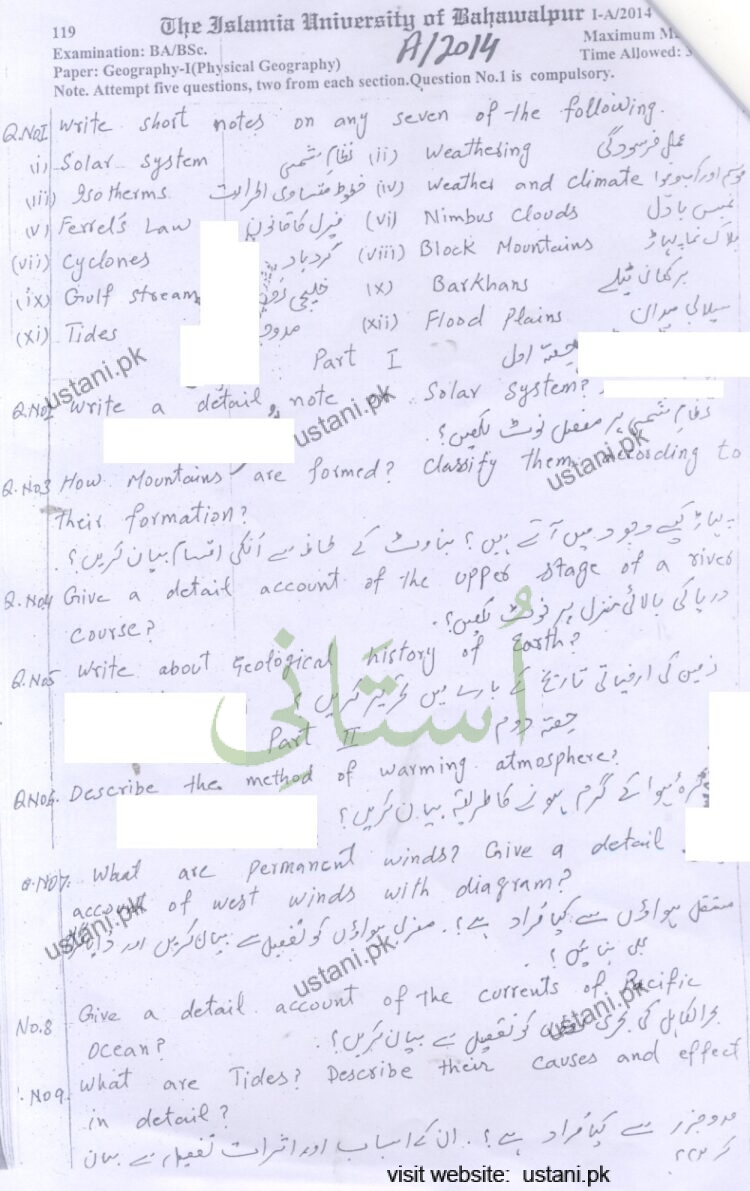 119 The Islamia University of Bahawalpur I-A/2014
A/2014
Examination: BA/BSc. Maximum
Paper: Geography-I(Physical Geography) Time Allowed: 3
Note. Attempt five questions, two from each section.Question No.1 is compulsory.
Q.No1 Write short notes on any seven of the following.
(i) Solar System نظام شمسی (ii) Weathering عمل فرسودگی
(iii) Isotherms خطوط متساوی الحرارت (iv) Weather and climate موسم اور آب و ہوا
(v) Ferrel's Law فیرل کا قانون (vi) Nimbus Clouds بادل
(vii) Cyclones گردباد (viii) Block Mountains بلاک نما پہاڑ
(ix) Gulf stream خلیجی (x) Barkhans برکھان ٹیلے
(xi) Tides (xii) Flood Plains سیلابی میدان
Part I حصہ اول
ustani.pk
Q.No2 Write a detail note Solar System?
ustani.pk
نظام شمسی پر مفصل نوٹ لکھیں؟
ustani.pk
Q.No3 How Mountains are formed? Classify them according to
their formation?
پہاڑ کیسے وجود میں آتے ہیں؟ بناوٹ کے لحاظ سے انکی اقسام بیان کریں؟
Q.No4 Give a detail account of the upper stage of a river
course?
دریا کی بالائی منزل پر نوٹ لکھیں؟
Q.No5 Write about Geological history of Earth?
زمین کی ارضیاتی تاریخ کے بارے میں تحریر کریں؟
اُستانی
Part II حصہ دوم
QNo6. Describe the method of warming atmosphere?
کرہ ہوا کے گرم ہونے کا طریقہ بیان کریں؟
Q.No7. What are Permanent winds? Give a detail
account of west winds with diagram?
مستقل ہواؤں سے کیا مُراد ہے؟ مغربی ہواؤں کو تفصیل سے بیان کریں اور
بھی بنائیں؟
ustani.pk
ustani.pk
No.8 Give a detail account of the currents of Pacific
Ocean?
بحرالکاہل کی بحری کو تفصیل سے بیان کریں؟
ustani.pk
No9. What are Tides? Describe their causes and effect
in detail?
مدوجزر سے کیا مُراد ہے؟ ان کے اسباب اور اثرات تفصیل سے بیان
visit website: ustani.pk